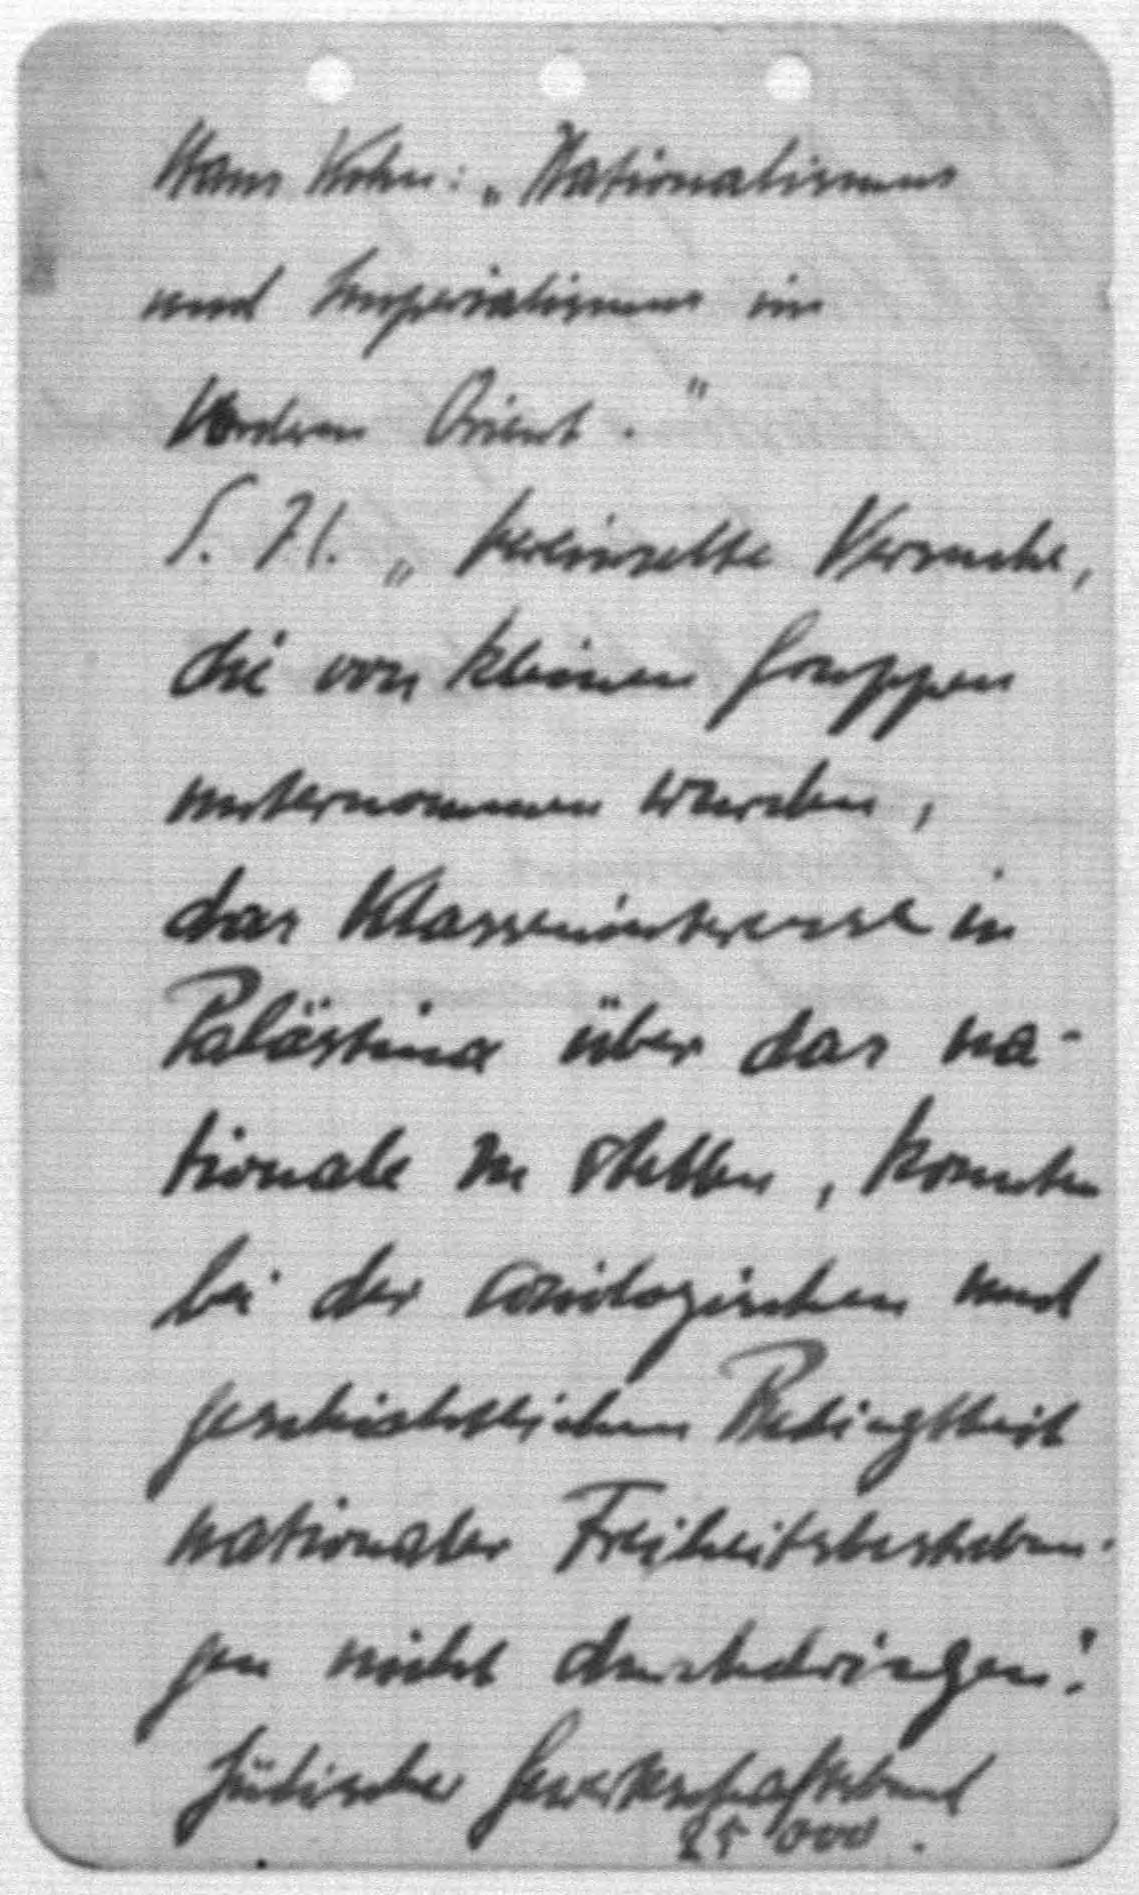 Hans Kohn: „Nationalismus
und Imperialismus im
Vorderen Orient."
S. 71. „Vereinzelte Versuche,
die von kleinen Gruppen
unternommen wurden,
das Klasseninteresse in
Palästina über das na-
tionale zu stellen, konnten
bei der soziologischen und
geschichtlichen Bedingtheit
nationaler Freiheitsbestrebun-
gen nicht durchdringen!
Jüdischer Gewerkschaftsbund
25 000.